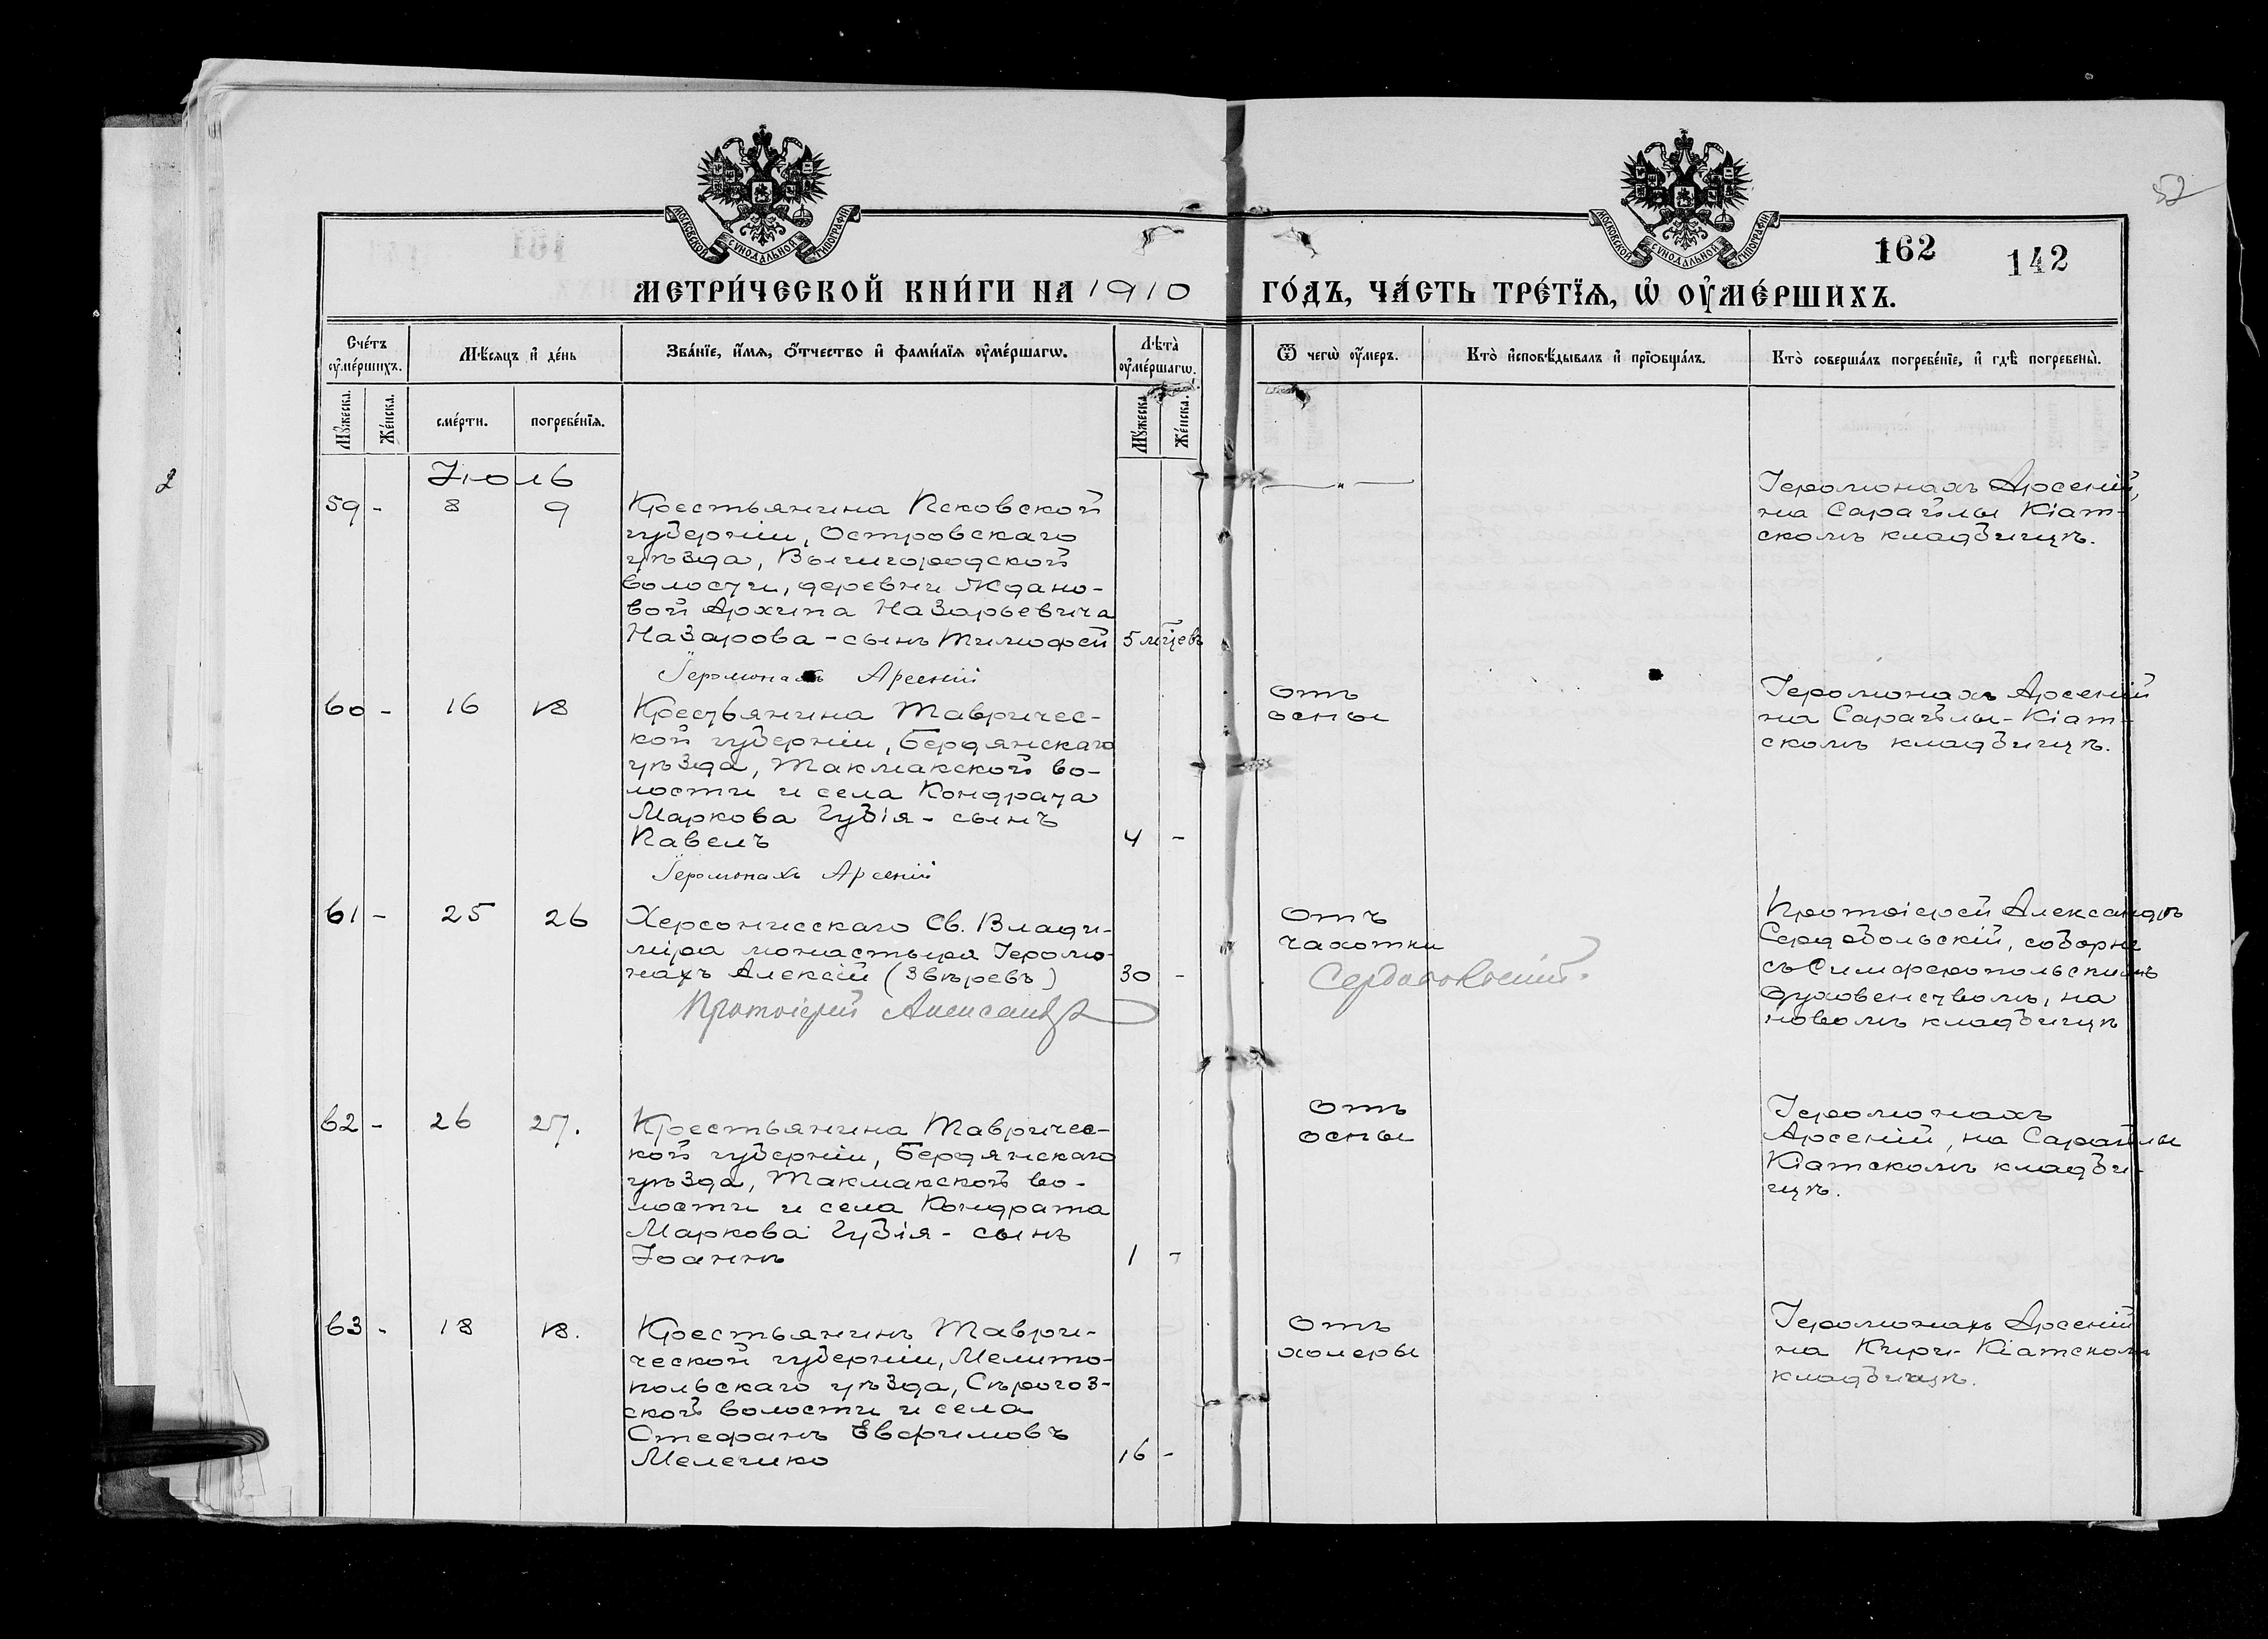 52
МОСКОВСКОЙ СУНОДАЛЬНОЙ ТИПОГРАФІИ
МОСКОВСКОЙ СУНОДАЛЬНОЙ ТИПОГРАФІИ
162 142
МЕТРИ́ЧЕСКОЙ КНИ́ГИ НА 1910 ГО́ДЪ, ЧА́СТЬ ТРЕ́ТЇѦ, Ѡ҆ ОУ҆МЕ́РШИХЪ.
Сче́тъ оу҆ме́ршихъ.
Мѣ́сяцъ и҆ де́нь
Зва́нїе, и҆́мѧ, ѻ҆́тчество и҆ фами́лїѧ оу҆ме́ршагѡ.
Лѣта̀ оу҆ме́ршагѡ.
Ѿ чегѡ̀ оу҆́меръ.
Кто̀ и҆сповѣ́дывалъ и҆ прїѻбща́лъ.
Кто̀ соверша́лъ погребе́нїе, и҆ гдѣ̀ погребены̀.
Мꙋ́жеска.
Же́нска.
сме́рти.
погребе́нїѧ.
Мꙋ́жеска
Же́нска.
2
Іюль
59 - 8 9
Крестьянина Псковской
губерніи, Островскаго
уѣзда, Вышгородской
волости, деревни Ждано-
вой Архипа Назарьевича
Назарова - сынъ Тимофей 5 м҃цевъ
Іеромонахъ Арсеній
— " —
Іеромонахъ Арсеній,
на Сарайлы Кіат-
скомъ кладбищѣ.
60 - 16 18
Крестьянина Тавричес-
кой губерніи, Бердянскаго
уѣзда, Такмакской во-
лости и села Кондрата
Маркова Губія - сынъ
Павелъ 4 -
Іеромонахъ Арсеній
Отъ
оспы
Іеромонахъ Арсеній
на Сарайлы-Кіат-
скомъ кладбищѣ.
61 - 25 26
Херсонисскаго Св. Влади-
міра монастыря Іеромо-
нахъ Алексій (Звѣревъ) 30 -
Протоіерей Александръ Сердобольскій.
Отъ
чахотки
Протоіерей Александръ
Сердобольскій, соборнѣ
съ Симферопольскимъ
духовенствомъ, на
новомъ кладбищѣ
62 - 26 27.
Крестьянина Тавричес-
кой губерніи, Бердянскаго
уѣзда, Такмакской во-
лости и села Кондрата
Маркова Губія - сынъ
Іоаннъ 1 -
Отъ
оспы
Іеромонахъ
Арсеній, на Сарайлы
Кіатскомъ кладби-
щѣ.
63 - 18 18.
Крестьянинъ Таври-
ческой губерніи, Мелито-
польскаго уѣзда, Сѣрогоз-
ской волости и села
Стефанъ Евфимовъ
Мелешко 16 -
Отъ
холеры
Іеромонахъ Арсеній
на Кири-Кіатскомъ
кладбищѣ.